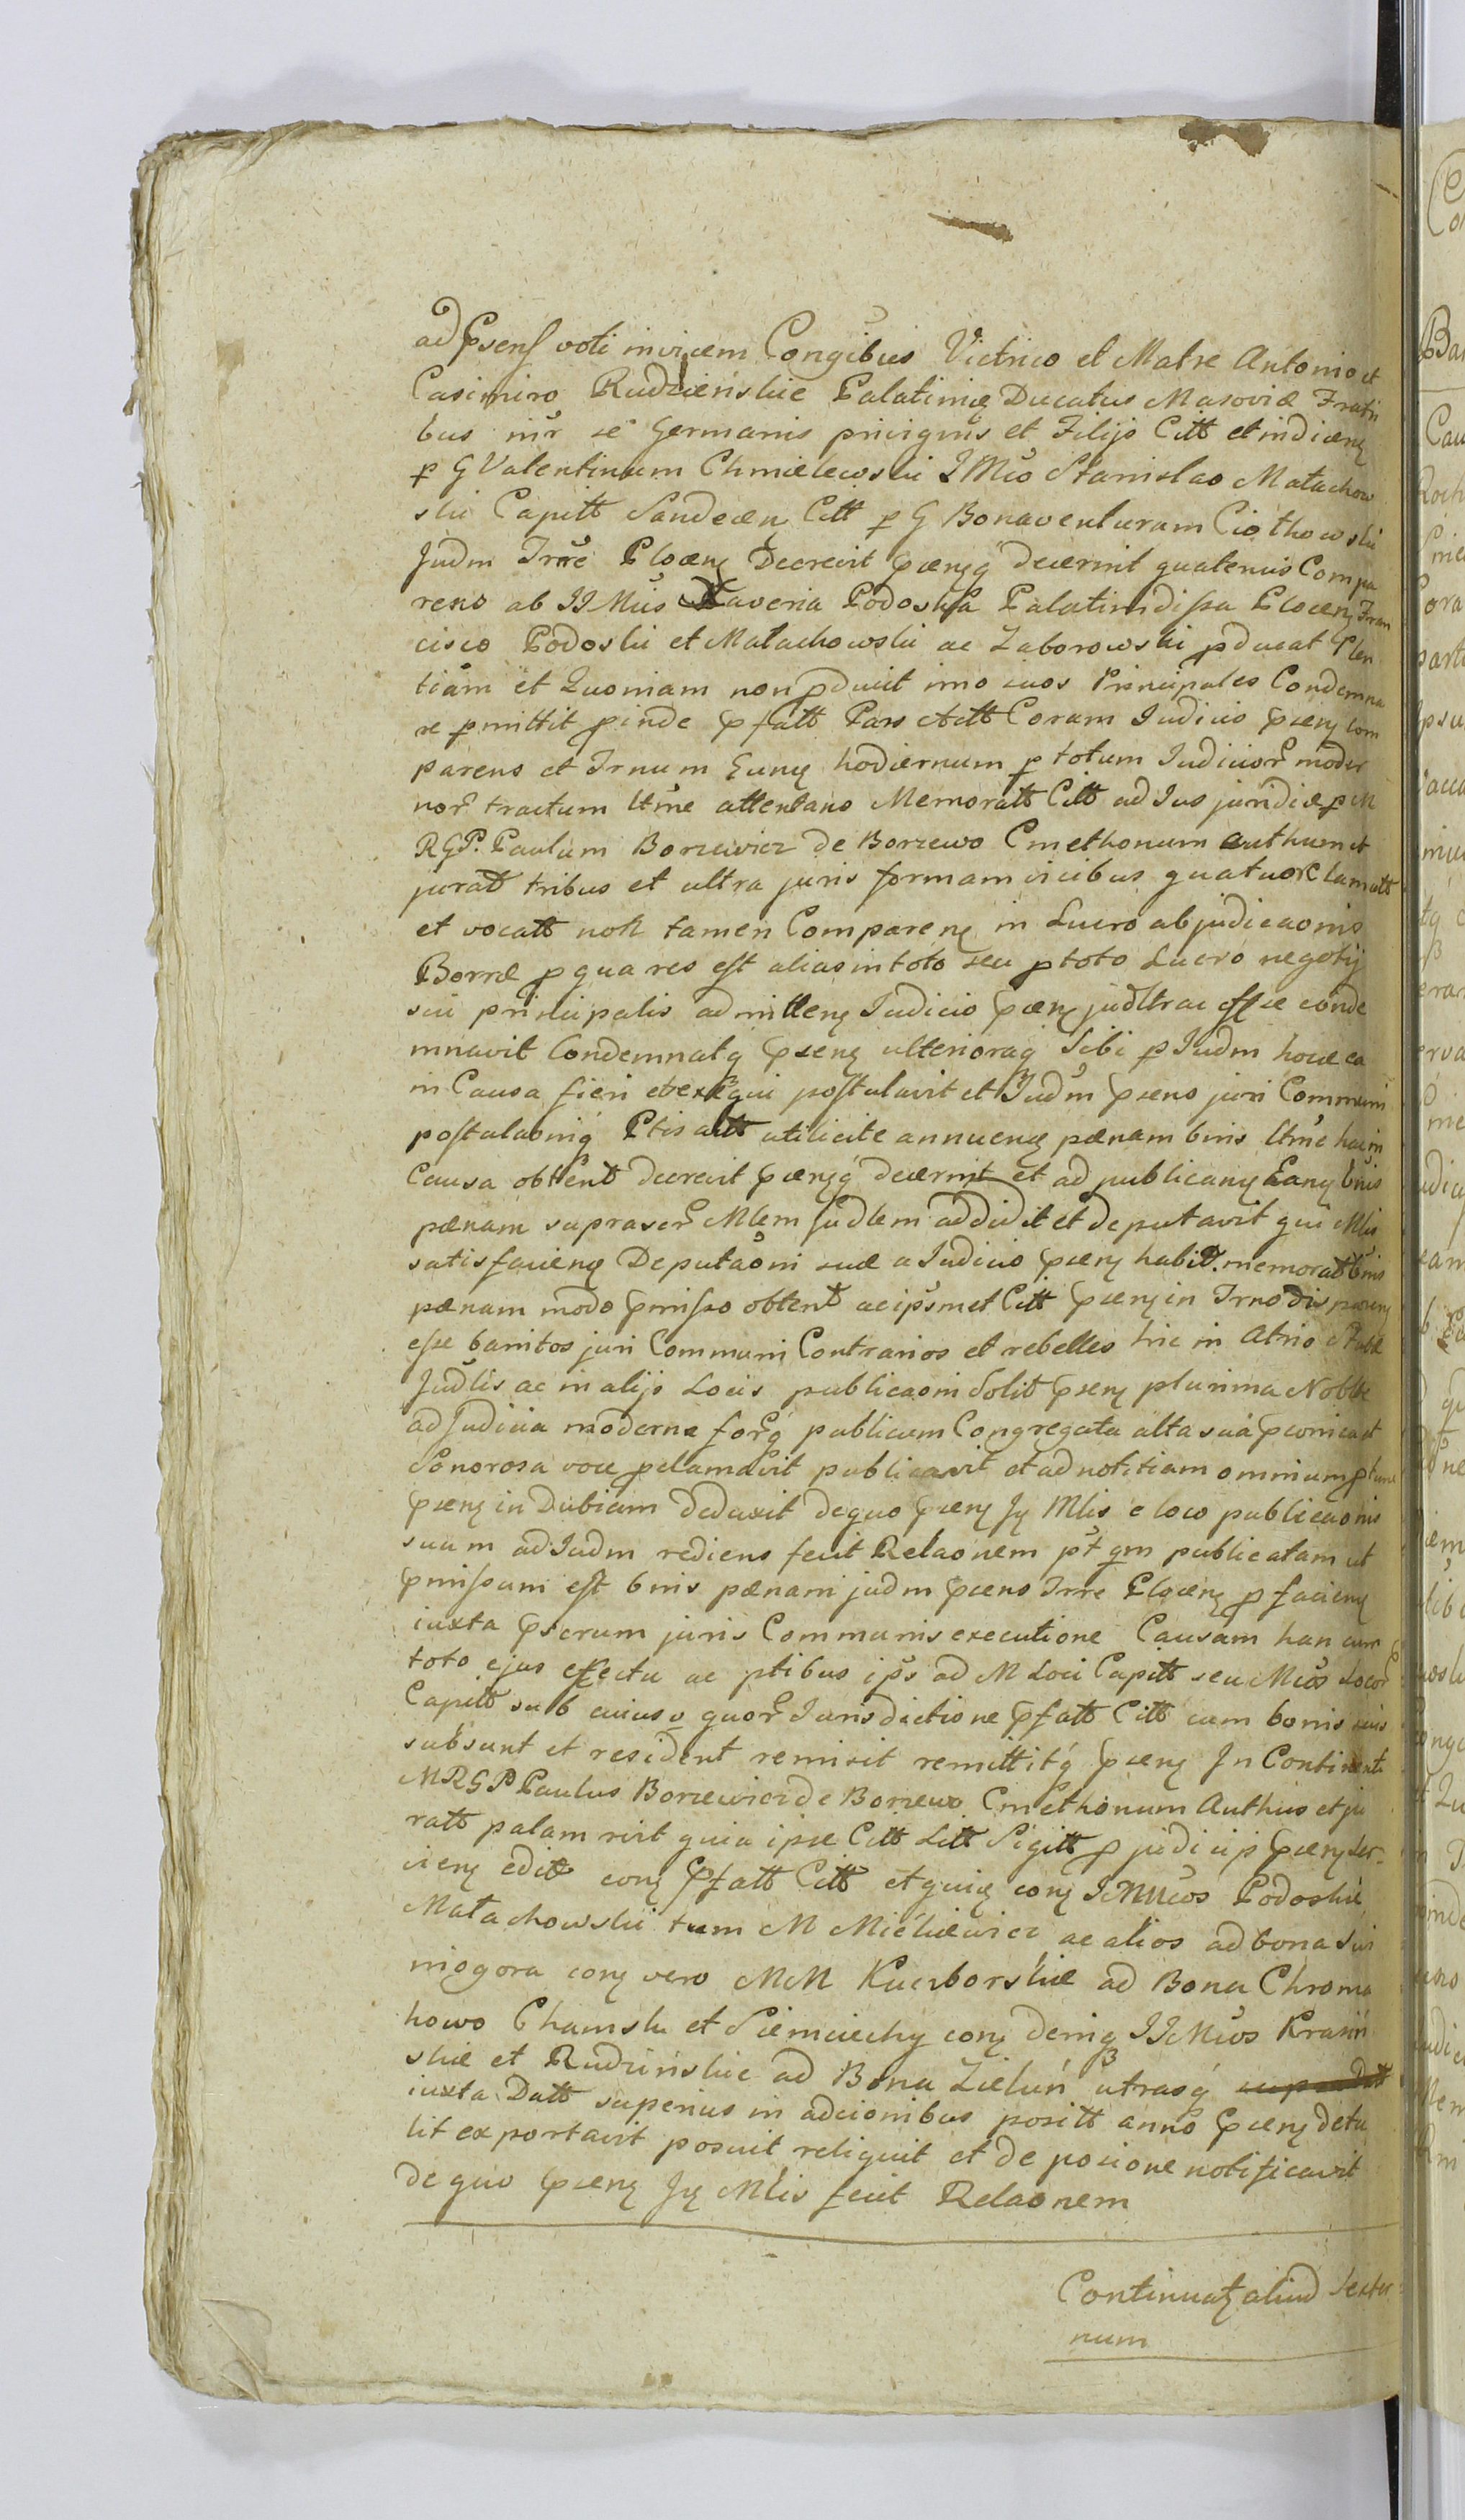 ad Psens voti invicem Congibus Victrico et Matre Antonio et
Casimiro Rudzienskie Palatinię Ducatus Masoviæ Fratri
bus inr se Germanis privignis et Filijs Citt et indiceny
p G Valentinum Chmielewski IMco Stanislao Małachow
ski Capitt Sandecen Citt p G Bonaventuram Ciothowski
Judm Trre Plocen Decrevit pñsq decernit quatenus Compa
rens ab IIMcis Xaveria Podoska Palatinidissa Plocen Fran
cisco Podoski et Małachowski ac Zaborowski pducat Plen
tiam et Quoniam non pducit imo suos Principales Condemna
re pmittit pinde pfatt Pars Actt Coram Judicio psens com
parens et Trnum hunc hodiernum p totum Judicior moder
nor tractum ltme attentans Memoratt Citt ad Jus juridice p M
RGP. Paulum Borzewicz de Borzewo Cmethonum authum et
jurat tribus et ultra juris formam vicibus quatuor clamatt
et vocatt non tamen Comparen in Lucro abjudicaonis
Borræ p qua res est alias in toto seu p toto Lucro negotij
sui principalis admitten Judicio psen judltrac esse conde
mnavit Condemnatq psens ulterioraq Sibi p Judm hocce ea
in Causa fieri et exequi postulavit et Judm psens juri Communi
postulaonig Ptis actt utilicite annuens pænam bnis ltme hac in
Causa obtent decrevit psensq decernit et ad publicany Eany bnis
pænam suprascr Mlem Judlem addidit et deputavit qui Mlis
satisfaciens Deputaoni suæ a Judicio psens habit. memorat bnis
pænam modo pmisso obtent ac ipsmet Citt psens in Trno disparens
esse banitos juri Communi Contrarios et rebelles hic in Atrio Stubæ
Judlis ac in alijs Locis publicaoni Solit psens plurima Nobltte
ad Judicia moderna forq publicum Congregata alta suá pconica et
Sonorosa voce pclamavit publicavit et ad notitiam omnium ptunc
psens in Dubiam deduxit de quo psens Jy Mlis e loco publicaonis
suum ad Judm rediens fecit Relaonem pt qm publicatam ut
pmissum est bnis pænam judm psens Trre Plocen p faciens
iuxta pscrum juris Communis executione Causam han cum
toto ejus effectu ac ptibus ips ad M Loci Capitt seu Mcos Locor
Capitt sub cuius v quor Jurisdictione pfatt Citt cum bonis suis
subsunt et resident remisit remittitq psens In Continenti
MRGP Paulus Borzewicz de Borzewo Cmethonum Authus et ju
ratt palam rvit quia ipse Citt Litt Sigitt p judicijs psens ser-
viens edit cony Pfatt Citt et quię cony IcMMcos Podoskie
Małachowski tum M Mićkiewicz ac alios ad bona Sui
niogora cony vero MM Kuczborskie ad Bona Chroma
howo Chamsk et Siemciechy cony deniq IIcMcos Krasiń
skie et Rudzińskie ad Bona Zieluń utrasq
iuxta Datt superius in adcionibus positt anno psens detu
lit exportavit posuit reliquit et de posicione notificavit
de quo psens Jy Mlis fecit Relaonem
Continuatz aliud Sexter
num